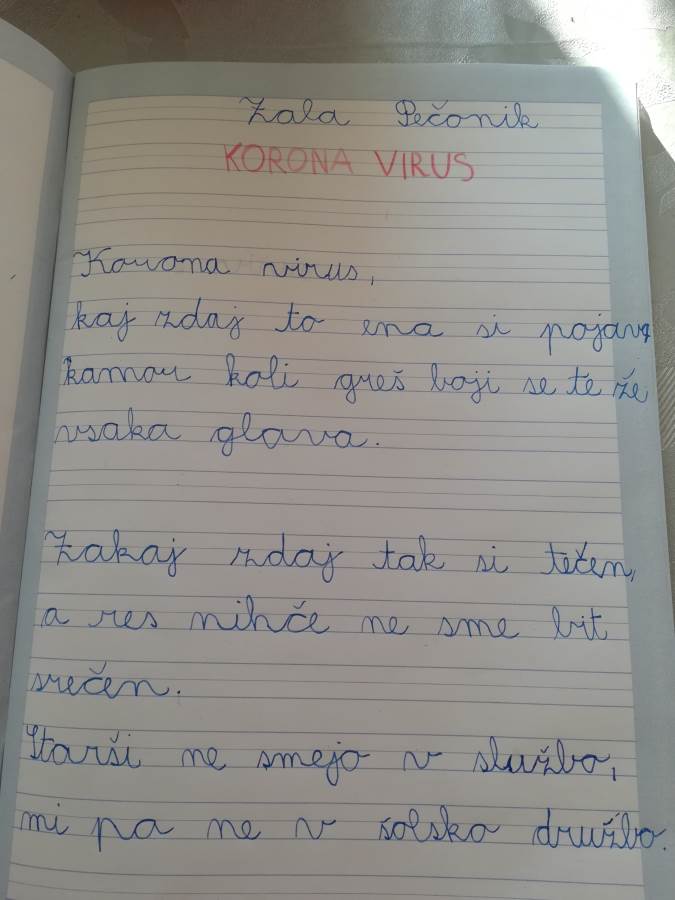 Zala Pečonik
KORONA VIRUS
Korona virus,
kaj zdaj to ena si pojava
kamor koli greš boji se te že
vsaka glava.
Zakaj zdaj tak si tečen,
a res nihče ne sme bit
srečen.
Starši ne smejo v službo,
mi pa ne v šolsko družbo.